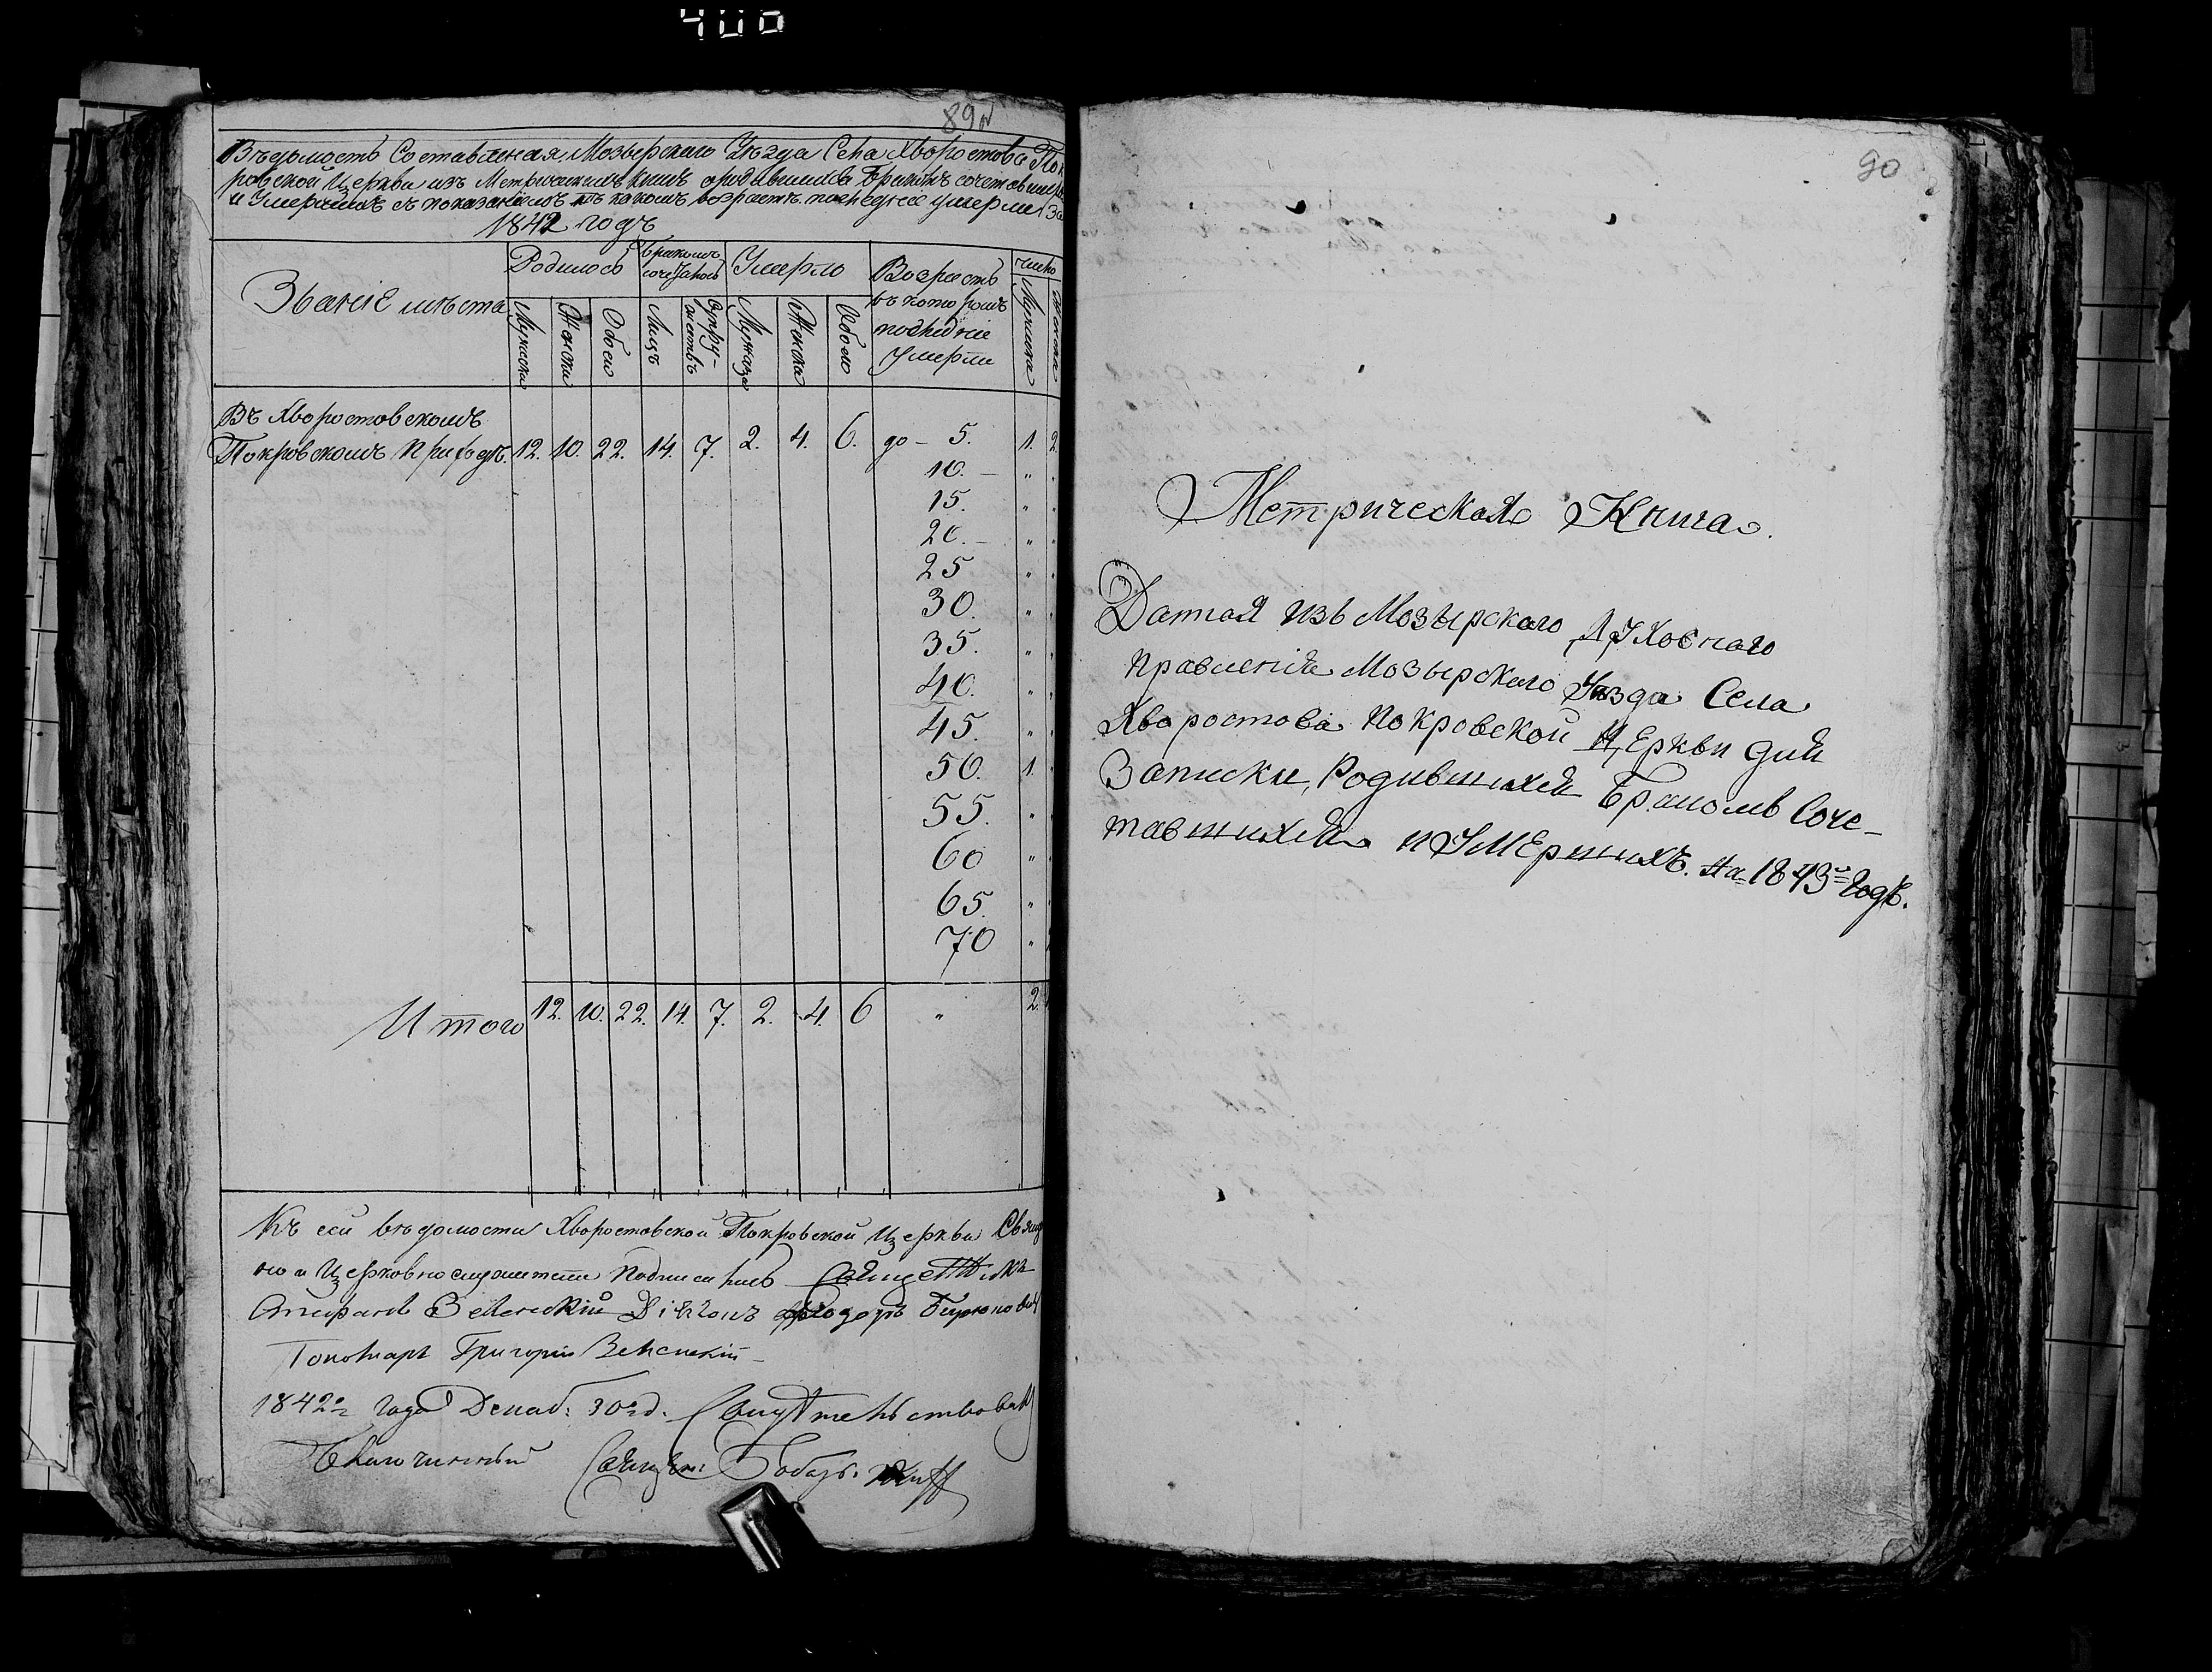 400
89
Вѣдомость Составленая Мозырскаго Уѣзда Села Хворостова Пок
ровской Церкви изъ Метрическихъ книгъ ородившихся Бракомъ сочетавшихся
и Умершихъ съ показаніемъ въ какомъ возрастѣ послѣдніе умерли За
1842 годъ
Званіе мѣста
Родилось
Бракомъ сочетанось
Умерло
Возрастъ
въ которомъ
послѣдніе
умерли
число
Мужеска
Женска
Обоего
Лицъ
Супру-
жествъ
Мужеска
Женска
Обоего
Мужеска
Женска
Въ Хворостовскомъ
Покровскомъ Приходѣ. 12. 10. 22. 14. 7. 2. 4. 6. до – 5. 1. 2
10. – „ „
15. „ „
20. – „ „
25 „ „
30. „ „
35. „ „
40. „ „
45. „ „
50. 1. „
55. „ „
60 „ „
65. „ „
70 „
Итого 12. 10. 22. 14. 7. 2. 4. 6 „ 2.
Къ сей вѣдомости Хворостовской Покровской Церкви Свящ
но и Церковнослужители подписались Священникъ
Стефанъ Зеленскій Діаконъ Ѳеодоръ
Пономарь Григорій Зеленскій
1842г Года Декаб: 30 д. Свидѣтельствовалъ
Благочинный Священ:
90
Метрическая Книга.
Данная изъ Мозырского Духовнаго
Правленія Мозырского Уѣзда Села
Хворостова Покровской Церкви для
Записки, Родившихся Бракомъ Соче-
тавшихся и Умершихъ. На 1843й Годъ.